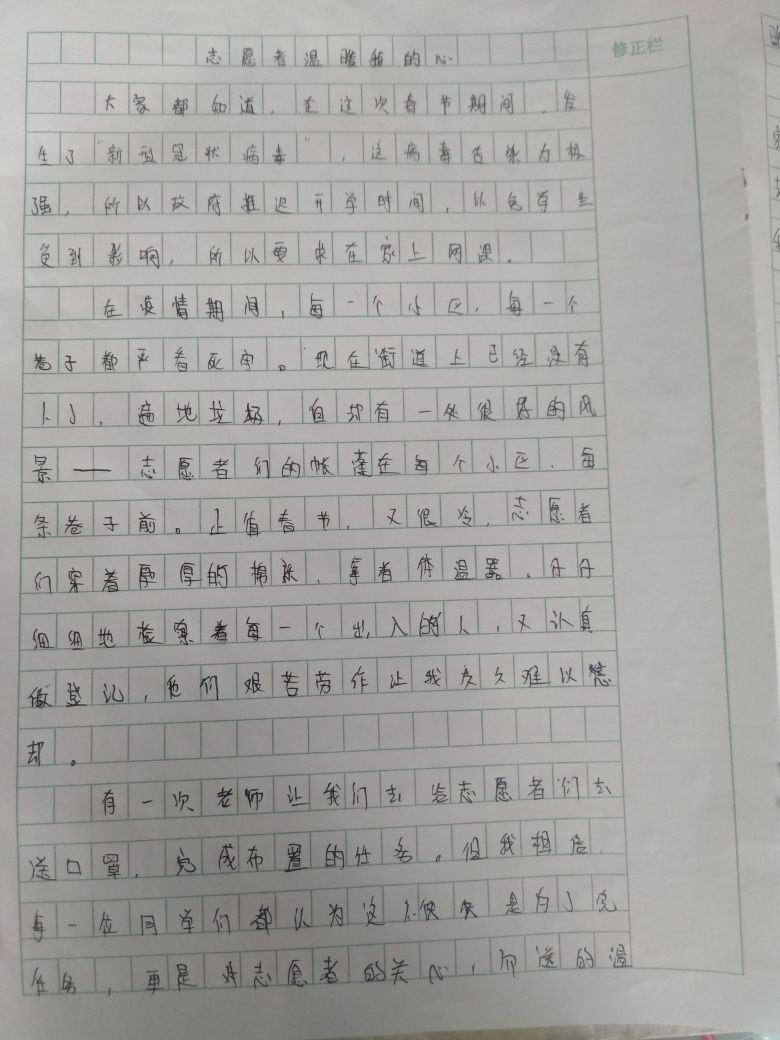 志愿者温暖我的心
修正栏
大家都知道，在这次春节期间，发
生了“新型冠状病毒”，这病毒传染力极
强，所以政府推迟开学时间，以免学生
受到影响，所以要求在家上网课。
在疫情期间，每一个小区，每一个
巷子都严看死守。现在街道上已经没有
人了，遍地垃圾，但却有一处很好的风
景——志愿者们的帐蓬在每个小区、每
条巷子前。正值春节，又很冷，志愿者
们穿着厚厚的棉袄，拿着体温器，仔仔
细细地检察着每一个出入的人，又认真
做登记，他们艰苦劳作让我久久难以忘
却。
有一次老师让我们去给志愿者们去
送口罩，完成布置的任务。但我相信，
每一位同学们都认为这不仅仅是为了完
任务，更是对志愿者的关心，而送的温